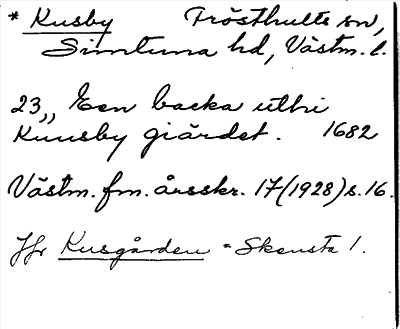 * Kusby Frösthults sn,
Simtuna hd, Västm. l.
23,, Een backa uthi
Kuusby giärdet. 1682
Västm. fm. årsskr. 17 (1928) s. 16.
Jfr Kusgården = Skensta 1.